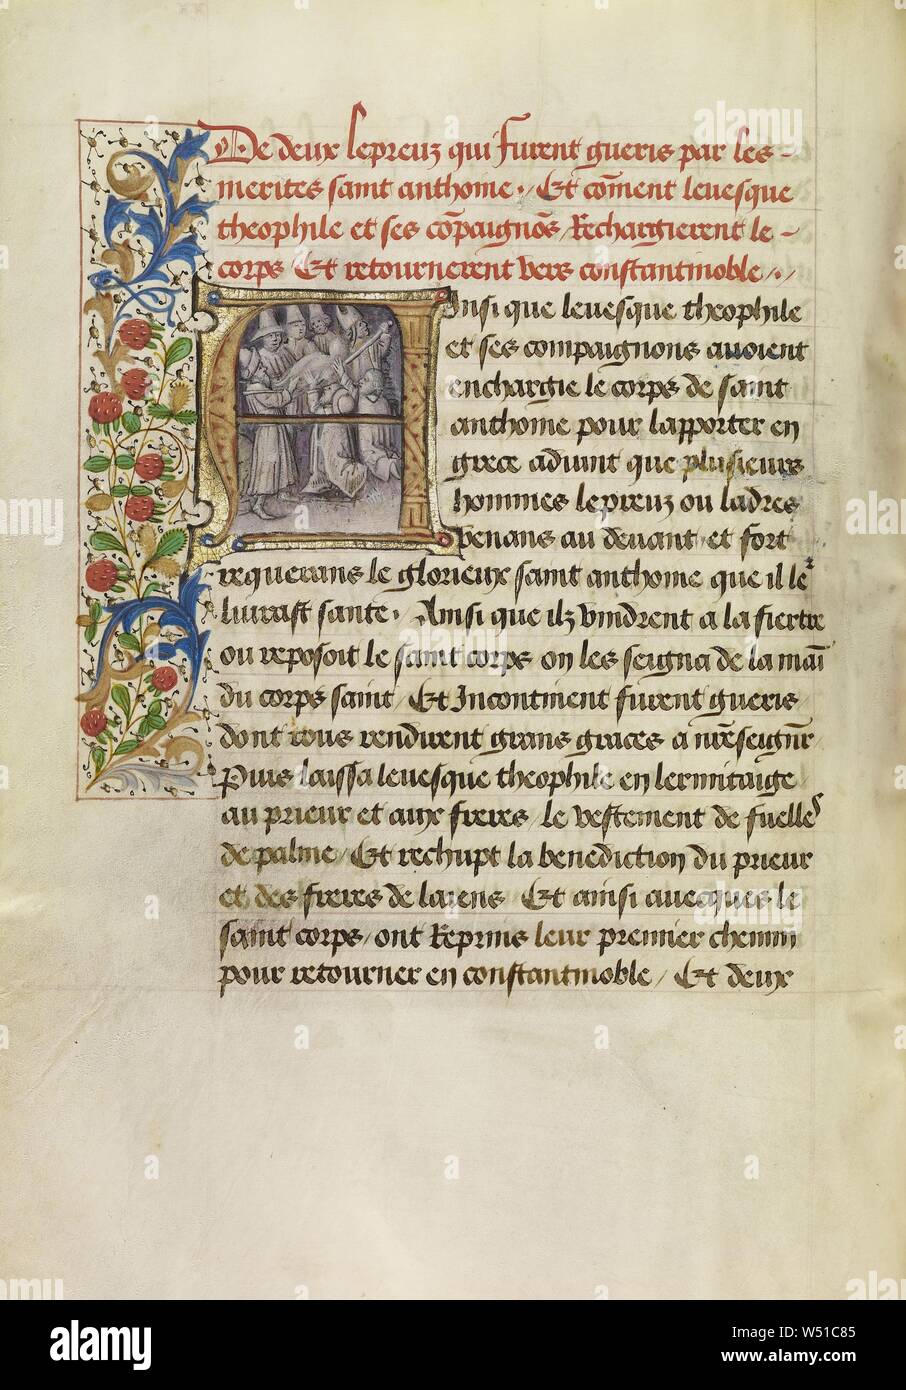 De deux lepreuz qui furent gueris par les -
merites saint anthoine · / Et cõment levesque
theophile et ses cõpaignõs / Rechargierent le -
corps / Et retournerent vers constantinoble / ·
Ainsi que levesque theophile
et ses compaignons avoient
enchargie le corps de saint
anthoine pour lapporter en
grece aduint que plusieurs
hommes lepreuz ou ladres
venans au devant et fort
requerans le glorieux saint anthoine que il le^r
livrast sante · Ainsi que ilz vindrent a la fiertre
ou reposoit le saint corps on les seigna de la maĩ
du corps saint / Et Incontinent furent gueris
dont tous rendirent grans graces a nr̃e seignr̃
Puis laissa levesque theophile en lermitaige
au prieur et aux freres / le vestement de fuelle^s
de palme / Et rechupt la benediction du prieur
et des freres de laiens / Et ainsi avecques le
saint corps / ont Reprins leur premier chemin
pour retourner en constantinoble / Et deux
alamy
Image ID: W51C85
www.alamy.com